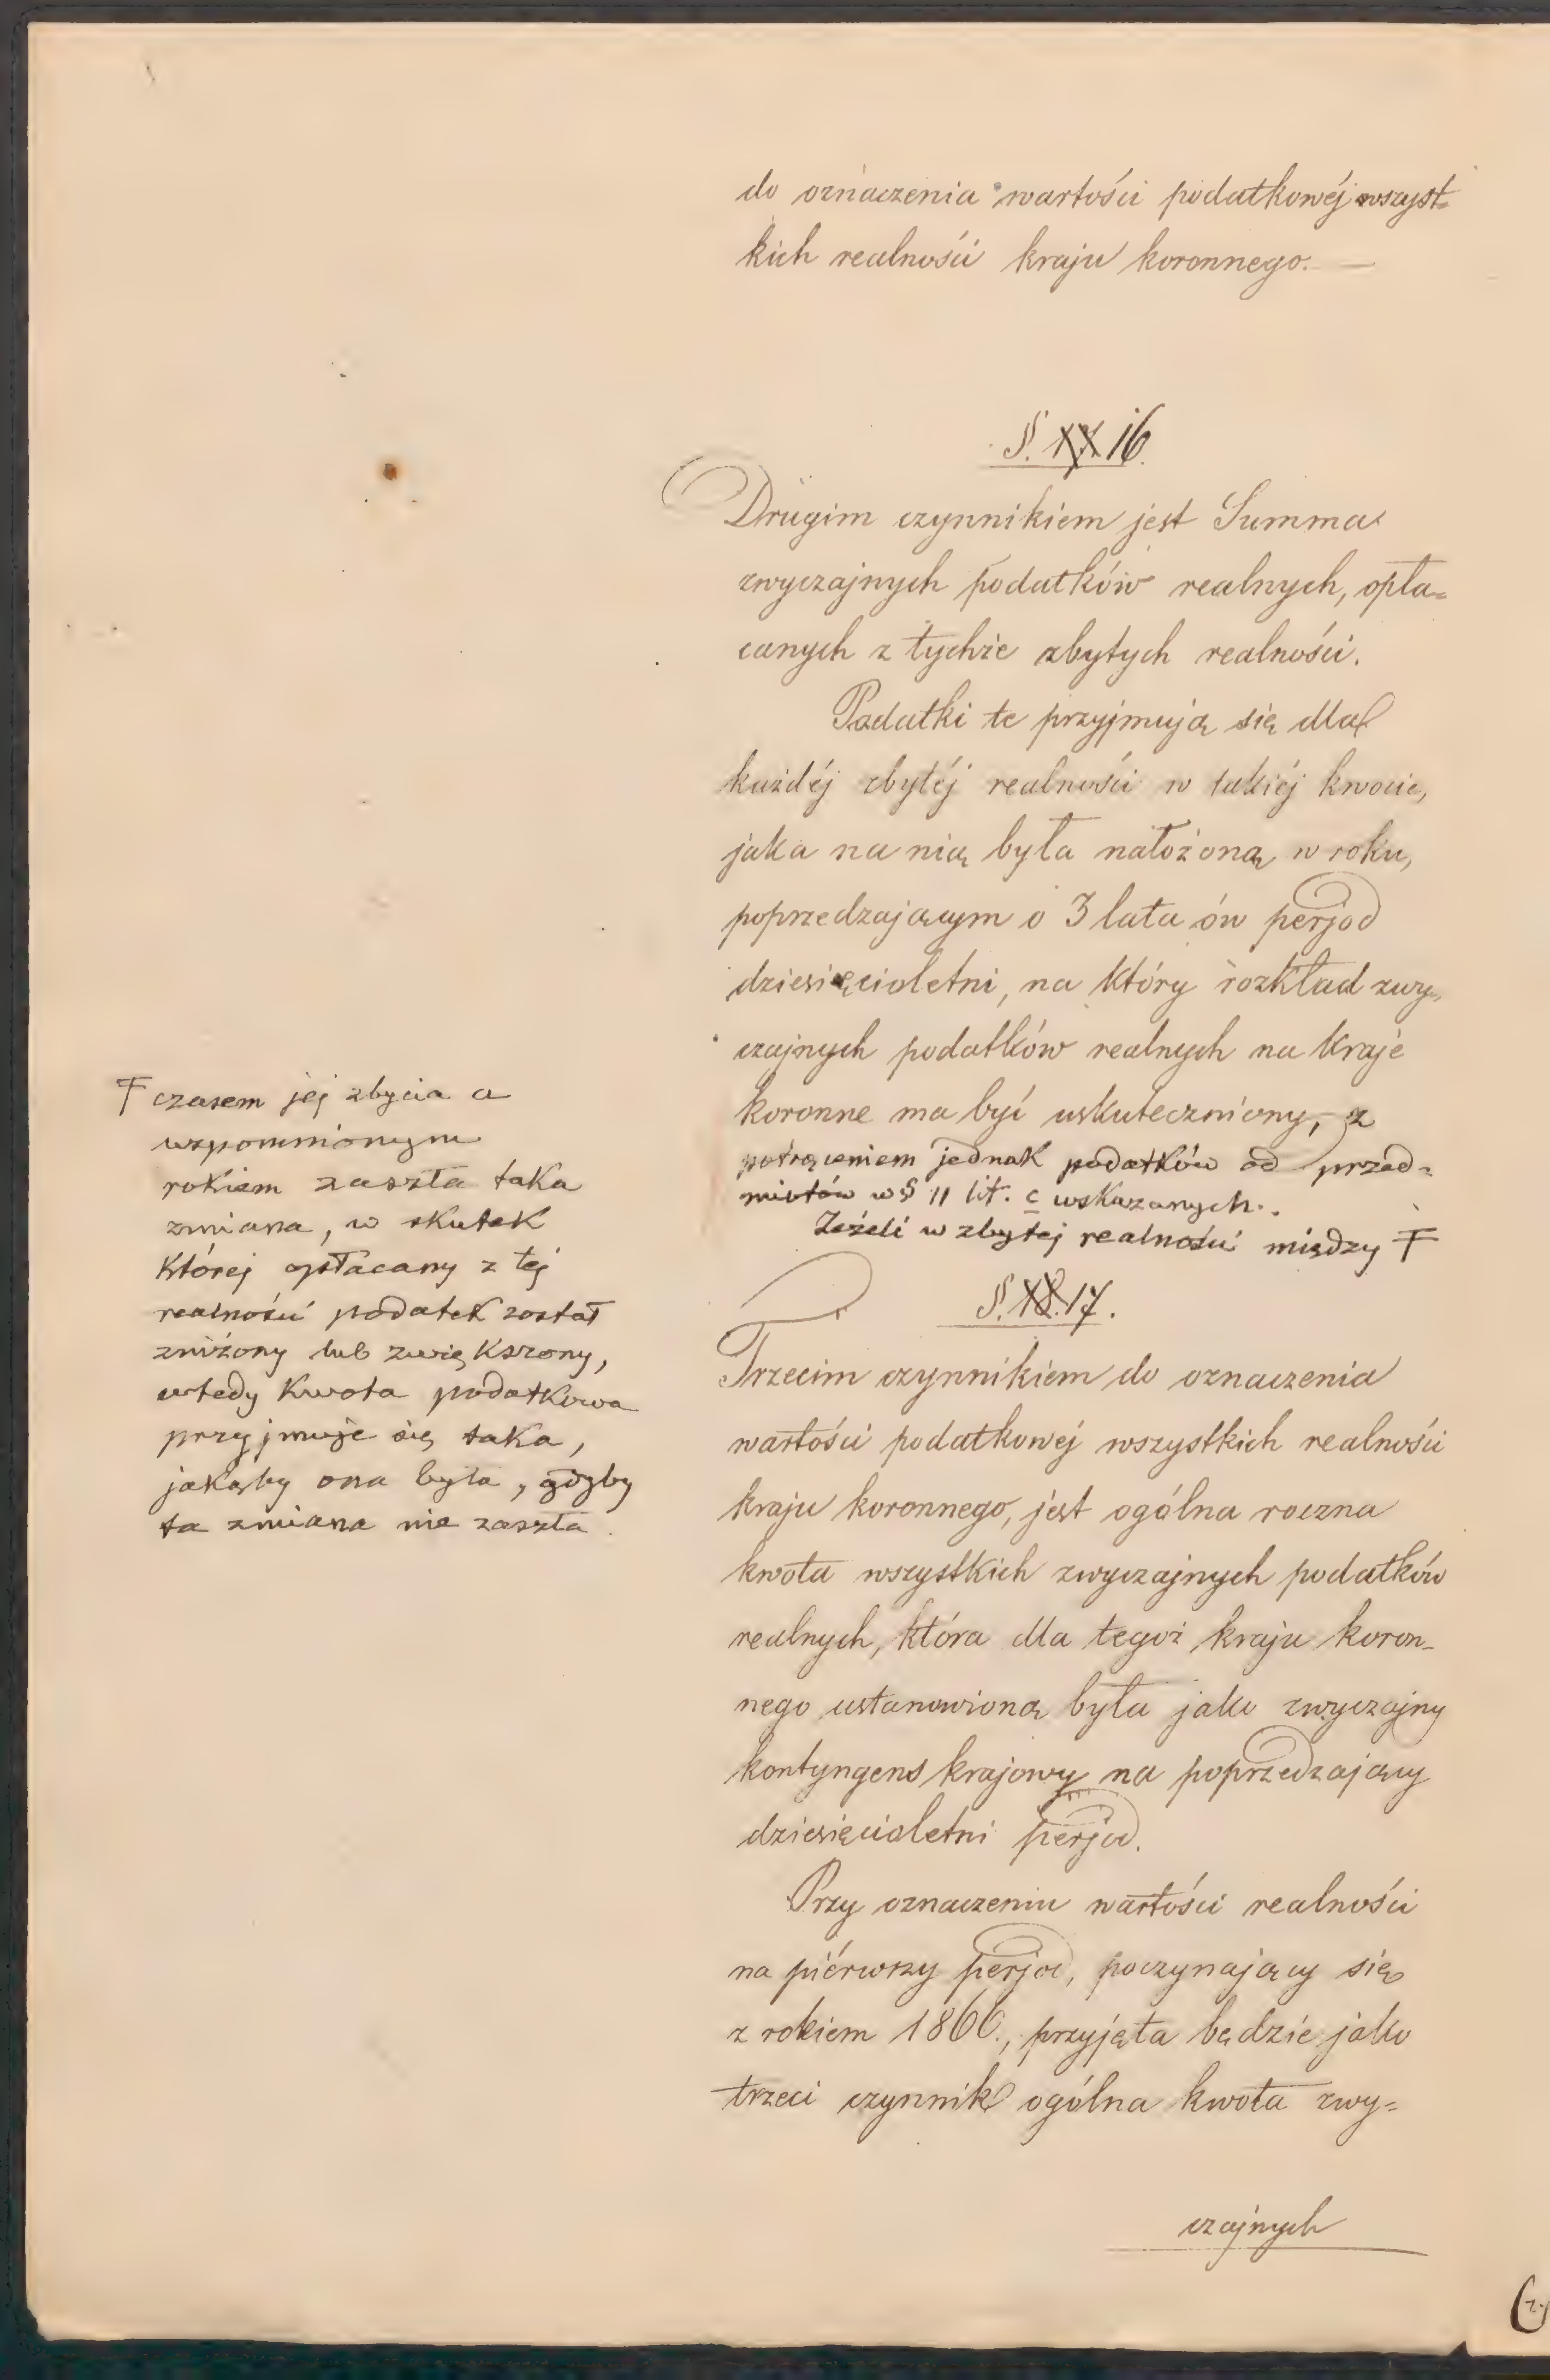 do oznaczenia wartości podatkowéj wszyst-
kich realności kraju koronnego.—
§. 16.
Drugim czynnikiem jest Summa
zwyczajnych podatków realnych, opła-
canych z tychże zbytych realności.
Podatki te przyjmują się dla
każdéj zbytéj realności w takiéj kwocie,
jaka na nią była nałożoną w roku,
poprzedzającym o 3 lata ów perjod
dziesięcioletni, na który rozkład zwy-
czajnych podatków realnych na kraje
koronne ma być uskuteczniony, z
potrąceniem jednak podatków od przed-
miotów w § 11 lit. c wskazanych.
Jeżeli w zbytej realności między Ŧ
Ŧ czasem jej zbycia a
wspomnionym
rokiem zaszła taka
zmiana, w skutek
której opłacany z tej
realności podatek został
zniżony lub zwiększony,
wtedy kwota podatkowa
przyjmuje się taka,
jakąby ona była, gdyby
ta zmiana nie zaszła.
§. 17.
Trzecim czynnikiem do oznaczenia
wartości podatkowej wszystkich realności
kraju koronnego, jest ogólna roczna
kwota wszystkich zwyczajnych podatków
realnych, która dla tegoż kraju koron-
nego ustanowioną była jako zwyczajny
kontyngens krajowy na poprzedzający
dziesięcioletni perjod.
Przy oznaczeniu wartości realności
na piérwszy perjod, poczynający się
z rokiem 1866., przyjęta będzie jako
trzeci czynnik ogólna kwota zwy-
czajnych